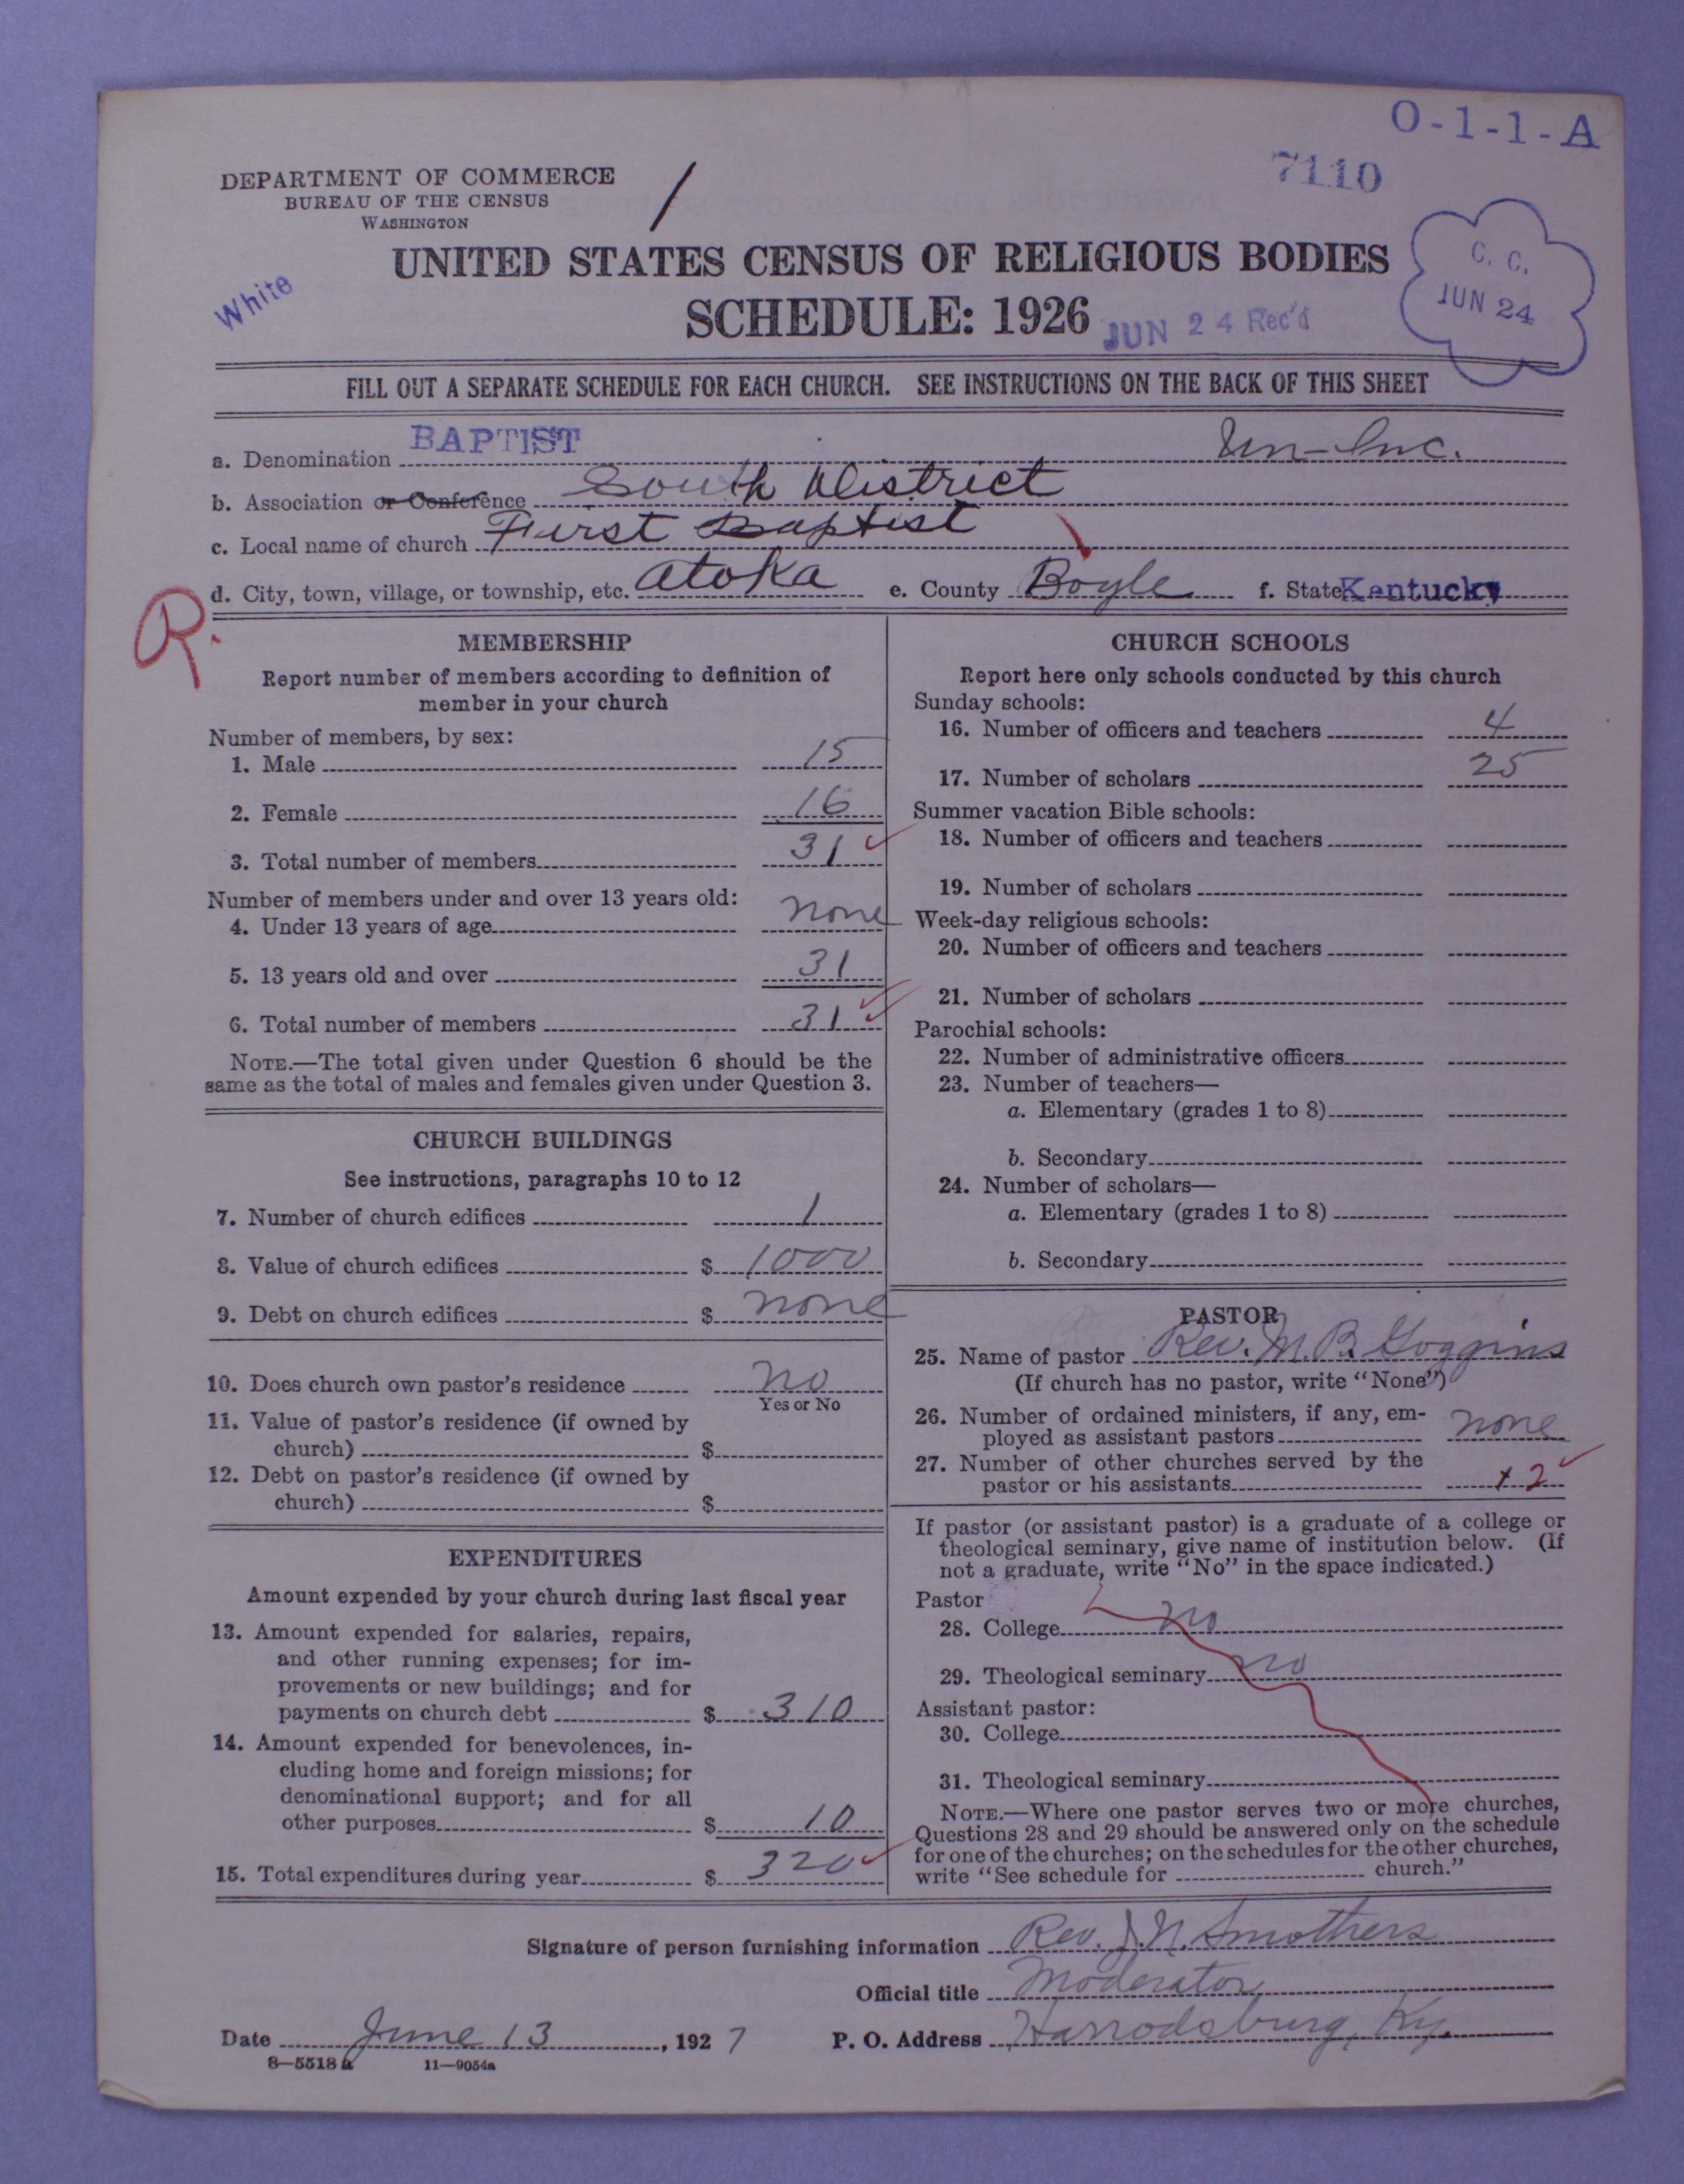 O-1-1-A
7110
DEPARTMENT OF COMMERCE
BUREAU OF THE CENSUS
WASHINGTON
/
White
UNITED STATES CENSUS OF RELIGIOUS BODIES
SCHEDULE: 1926
JUN 24 Rec'd
C. C.
JUN 24
FILL OUT A SEPARATE SCHEDULE FOR EACH CHURCH. SEE INSTRUCTIONS ON THE BACK OF THIS SHEET
a. Denomination BAPTIST Un-Inc.
b. Association or Conference South District
c. Local name of church First Baptist
d. City, town, village, or township, etc. Atoka e. County Boyle f. State Kentucky
R.
MEMBERSHIP
Report number of members according to definition of
member in your church
Number of members, by sex:
1. Male 15
2. Female 16
3. Total number of members 31
Number of members under and over 13 years old:
4. Under 13 years of age none
5. 13 years old and over 31
6. Total number of members 31
NOTE.—The total given under Question 6 should be the
same as the total of males and females given under Question 3.
CHURCH BUILDINGS
See instructions, paragraphs 10 to 12
7. Number of church edifices 1
8. Value of church edifices $ 1000
9. Debt on church edifices $ none
10. Does church own pastor's residence no
Yes or No
11. Value of pastor's residence (if owned by
church) $
12. Debt on pastor's residence (if owned by
church) $
EXPENDITURES
Amount expended by your church during last fiscal year
13. Amount expended for salaries, repairs,
and other running expenses; for im-
provements or new buildings; and for
payments on church debt $ 310
14. Amount expended for benevolences, in-
cluding home and foreign missions; for
denominational support; and for all
other purposes $ 10
15. Total expenditures during year $ 320
CHURCH SCHOOLS
Report here only schools conducted by this church
Sunday schools:
16. Number of officers and teachers 4
17. Number of scholars 25
Summer vacation Bible schools:
18. Number of officers and teachers
19. Number of scholars
Week-day religious schools:
20. Number of officers and teachers
21. Number of scholars
Parochial schools:
22. Number of administrative officers
23. Number of teachers—
a. Elementary (grades 1 to 8)
b. Secondary
24. Number of scholars—
a. Elementary (grades 1 to 8)
b. Secondary
PASTOR
25. Name of pastor Rev. M. B. Goggins
(If church has no pastor, write "None")
26. Number of ordained ministers, if any, em-
ployed as assistant pastors none
27. Number of other churches served by the
pastor or his assistants 2
If pastor (or assistant pastor) is a graduate of a college or
theological seminary, give name of institution below. (If
not a graduate, write "No" in the space indicated.)
Pastor
28. College no
29. Theological seminary no
Assistant pastor:
30. College
31. Theological seminary
NOTE.—Where one pastor serves two or more churches,
Questions 28 and 29 should be answered only on the schedule
for one of the churches; on the schedules for the other churches,
write "See schedule for church."
Signature of person furnishing information Rev. J. N. Smothers
Official title Moderator
Date June 13, 1927 P. O. Address Harrodsburg, Ky.
8—5518 a 11—9054a